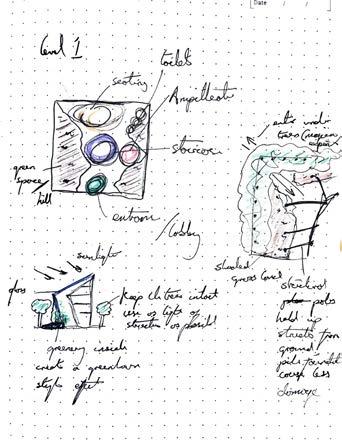 Date / /
Level 1
toilet
seating
Ampitheatr
staircase
green
space
hill
entrance
/lobby
enter under
trees
shaded
grass level
structural
poles
hold up
structure from
ground
pile foundat
cause less
damage
sunlight
glass
Keep the trees intact
use as light of
structure as possible
greenery inside
create a greenhouse
style effect